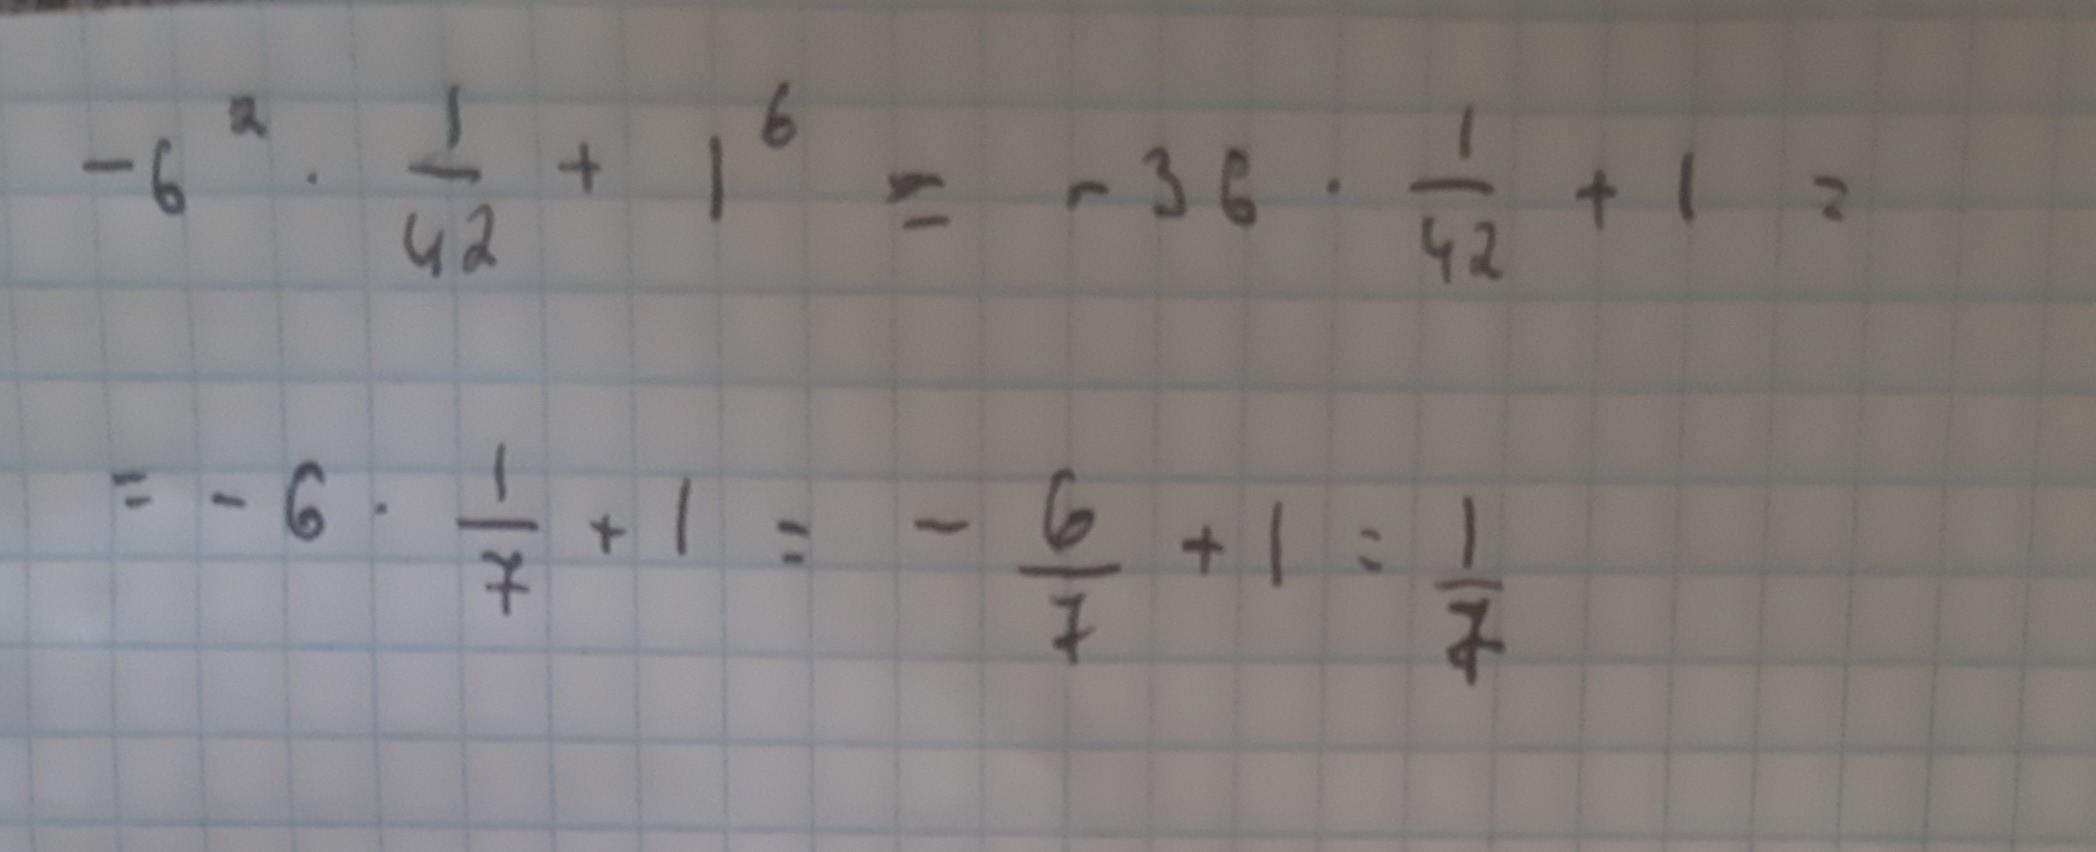 -6² · 1/42 + 1⁶ = -36 · 1/42 + 1 =
= -6 · 1/7 + 1 = -6/7 + 1 = 1/7